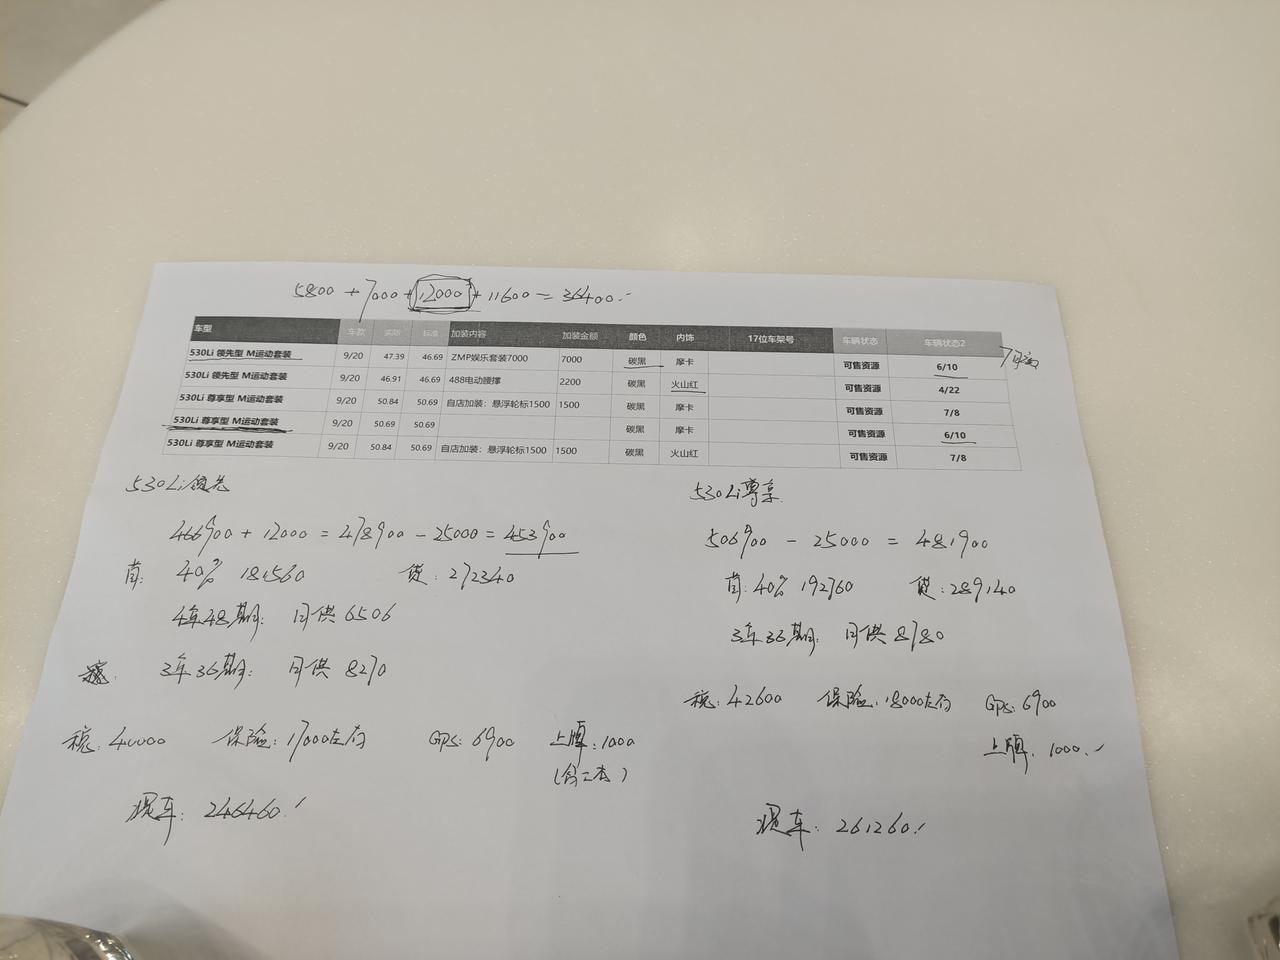 5800 + 7000 + 12000 + 11600 = 36400.
车型 车款 实际 标准 加装内容 加装金额 颜色 内饰 17位车架号 车辆状态 车辆状态2
530Li 领先型 M运动套装 9/20 47.39 46.69 ZMP娱乐套装7000 7000 碳黑 摩卡 可售资源 6/10
530Li 领先型 M运动套装 9/20 46.91 46.69 488电动腰撑 2200 碳黑 火山红 可售资源 4/22
530Li 尊享型 M运动套装 9/20 50.84 50.69 自店加装：悬浮轮标1500 1500 碳黑 摩卡 可售资源 7/8
530Li 尊享型 M运动套装 9/20 50.69 50.69 碳黑 摩卡 可售资源 6/10
530Li 尊享型 M运动套装 9/20 50.84 50.69 自店加装：悬浮轮标1500 1500 碳黑 火山红 可售资源 7/8
530Li 领先
466900 + 12000 = 478900 - 25000 = 453900
首: 40% 181560 贷: 272340
4年48期: 月供 6506
3年36期: 月供 8270
税: 40000 保险: 17000左右 GPS: 6900 上牌: 1000
(含二本)
现车: 246460.
530Li 尊享
506900 - 25000 = 481900
首: 40% 192760 贷: 289140
3年36期: 月供 8780
税: 42600 保险: 18000左右 GPS: 6900
上牌: 1000.
现车: 261260.